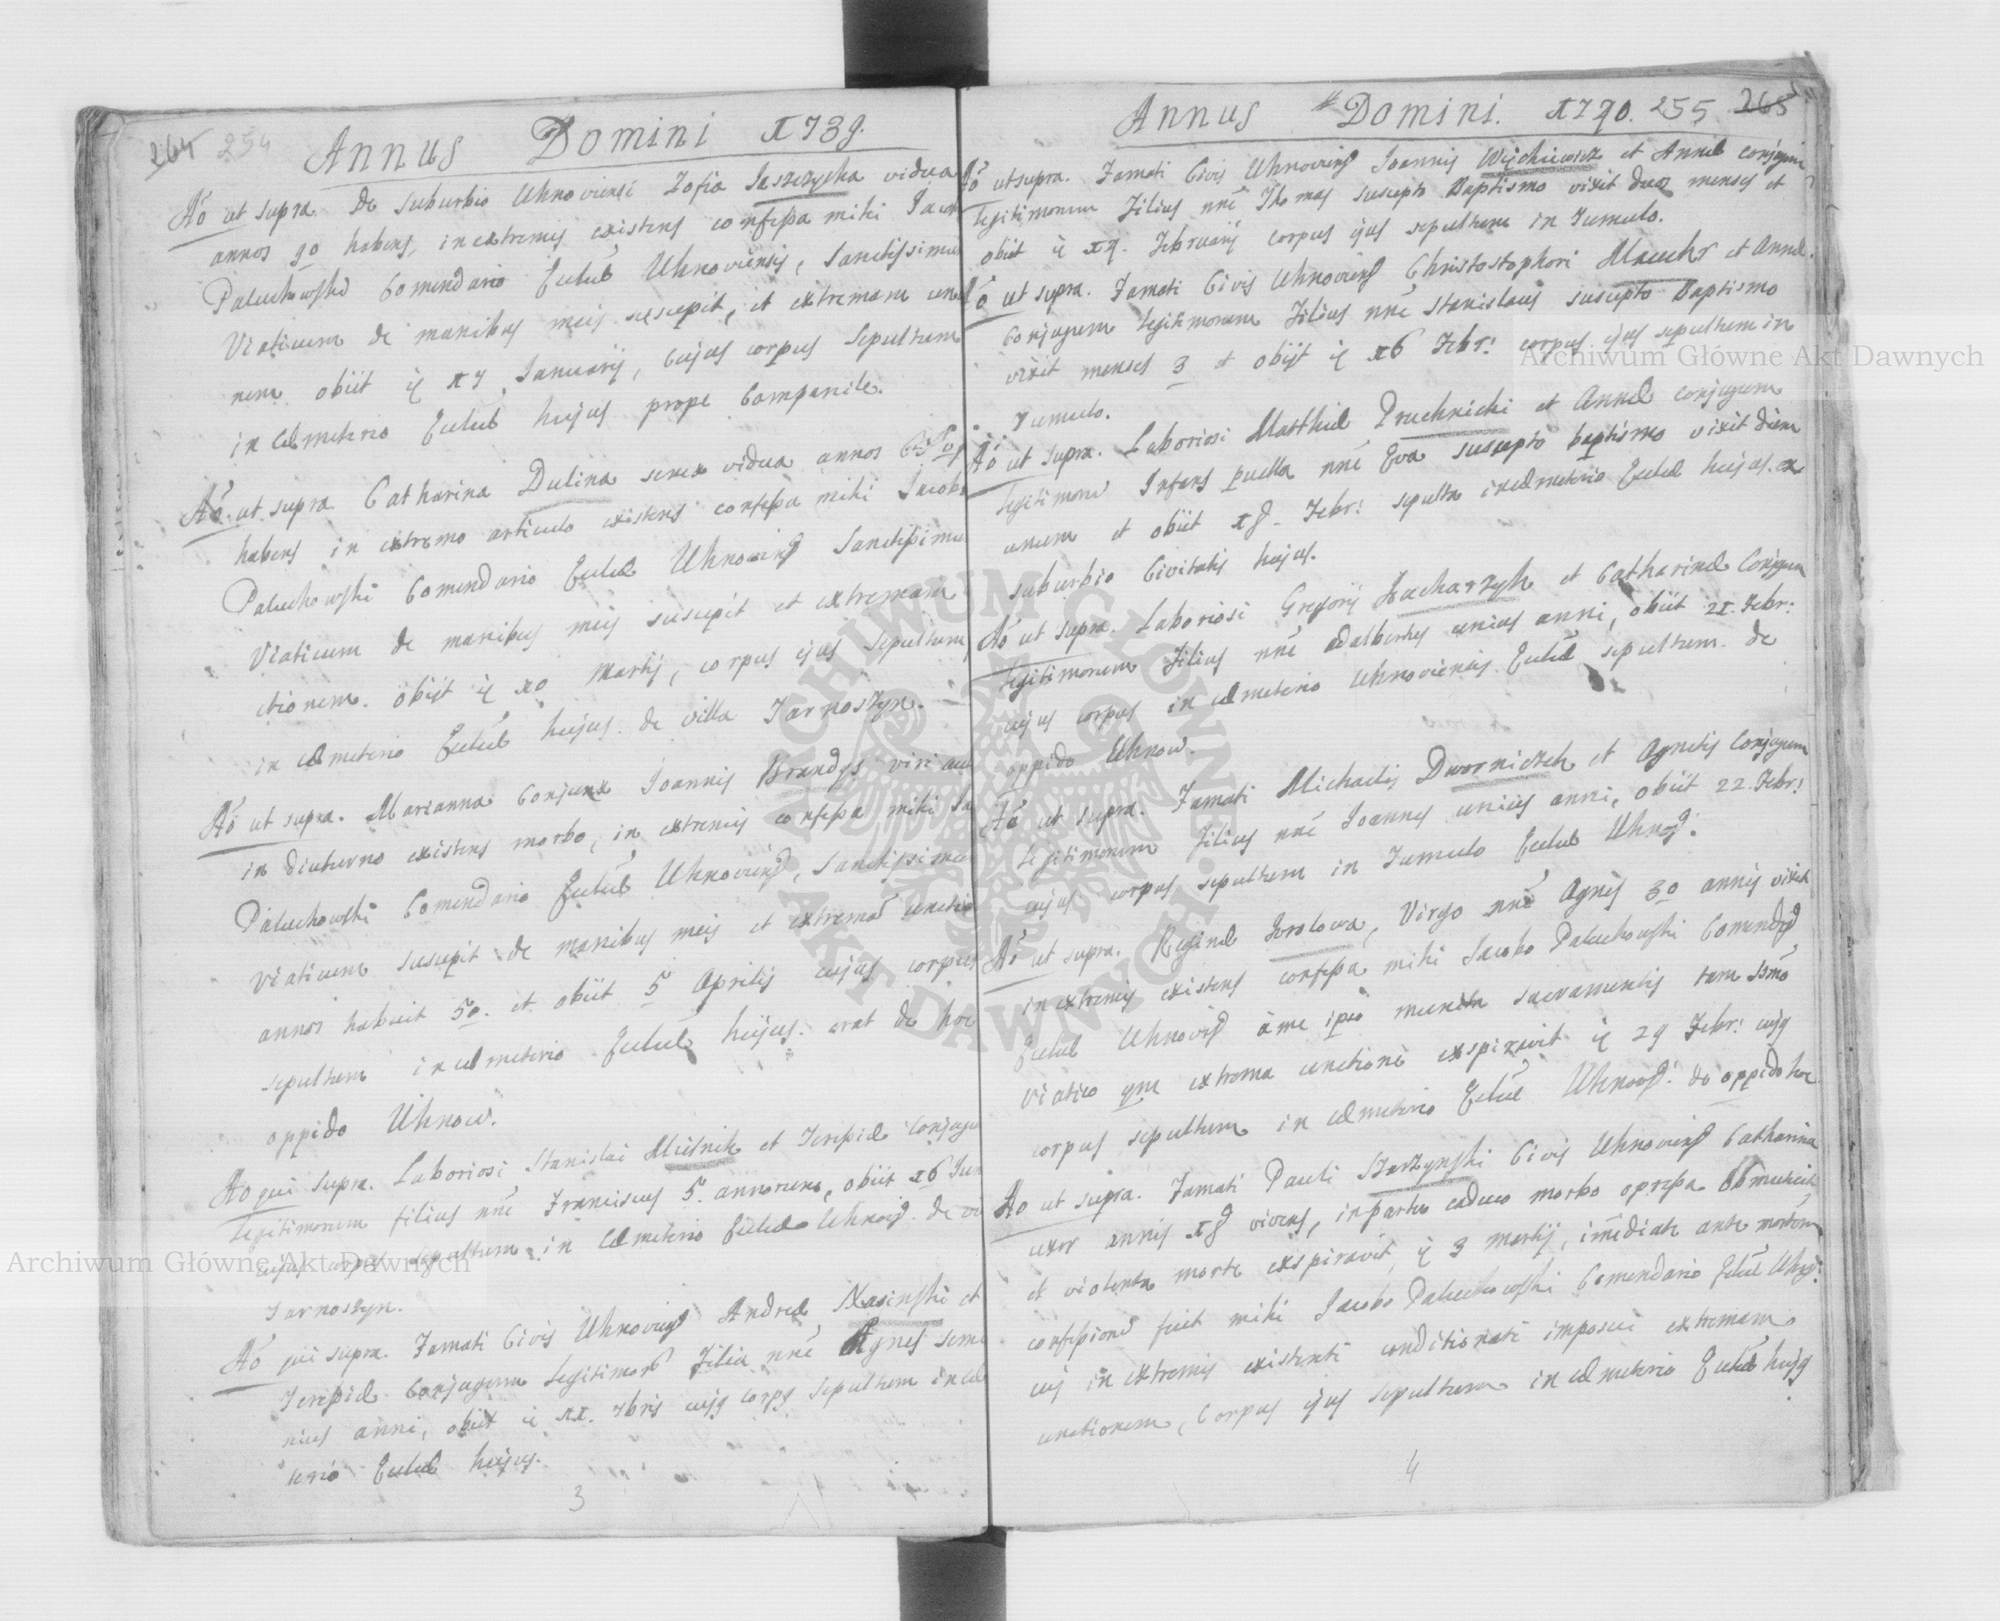 264 254
Annus Domini 1739.
Ao ut supra. De suburbio Uhnoviensi Zofia Jaszczycha vidua
annos 90 habens, in extremis existens confessa mihi Jacob
Paluchowski Comendario Ecclae Uhnoviensis, Sanctissimu
Viaticum de manibus meis suscepit, et extremam unct
nem obiit q 17 Januarij, cujus corpus sepultum
in Caemeterio Ecclae hujus prope Companile.
Ao ut supra Catharina Dulina senex vidua annos
habens in extremo articulo existens confessa mihi Jacobo
Paluchowski Comendario Ecclae Uhnovien Sanctissimu
Viaticum de manibus meis suscepit et extremam
ctionem. obijt q 10 Martij, corpus ejus sepultum
in Caemeterio Ecclae hujus. de villa Tarnoszyn.
Ao ut supra. Marianna Conjunx Joannis Brandys viri
in diuturno existens morbo, in extremis confessa mihi Ja
Paluchowski Comendario Ecclae Uhnovien, Sanctissimu
Viaticum suscepit de manibus meis et extrema unctio
annos habuit 50. et obiit 5 Aprilis cujus corpus
sepultum in caemeterio Ecclae hujus. erat de hoc
oppido Uhnow.
Ao qui supra. Laboriosi Stanislai Mielnik et Teressiae Conjugu
legitimorum filius nne Franciscus 5. annorum, obiit 16 Jun
cujus corpus sepultum in Caemeterio Ecclae Uhnovien. de vi
Tarnoszyn.
Ao qui supra. Famati Civis Uhnovien Andreae Nasinski et
Teressiae Conjugum legitimor Filia nne Agnes
nius anni, obiit q 11. 7bris cujq corpq sepultum in cae
terio Ecclae hujus.
3
Annus Domini. 1740. 255 265
Ao ut supra. Famati Civis Uhnovien Joannis Wojchiewicz et Annae conjugum
legitimorum Filius nne Thomas suscepto Baptismo vixit duos menses et
obiit q 14. Februarij corpus ejus sepultum in Tumulo.
Ao ut supra. Famati Civis Uhnovien Christostophori Macuhr et Annae
Conjugum legitimorum Filius nne Stanislaus suscepto Baptismo
vixit menses 3 et obijt q 16 Febr: corpus ejus sepultum in
Tumulo.
Ao ut supra. Laboriosi Matthiae Pruchnicki et Annae conjugum
legitimoru Infans puella nne Eva suscepto baptismo vixit diem
unum et obiit 18. Febr: sepulta in caemeterio Ecclae hujus. ex
suburbio Civitatis hujus.
Ao ut supra. Laboriosi Gregorij Kucharzyk et Catharinae Conjugum
legitimorum Filius nne Adalbertus unius anni, obiit 21. Febr:
cujus corpus in caemeterio Uhnoviensis Ecclae sepultum. de
oppido Uhnow.
Ao ut supra. Famati Michaelis Dworniczek et Agnetis Conjugum
legitimorum Filius nne Joannes unius anni, obiit 22. Febr:
cujus corpus sepultum in Tumulo Ecclae Uhnov:
Ao ut supra. Reginae Krolowa, Virgo nne Agnes 30 annis vixit
in extremis existens confessa mihi Jacobo Paluchowski Comend
Ecclae Uhnovien a me ipso munita sacramentis tam Ssmo
Viatico qm extrema unctione exspiravit q 29 Febr: cujq
corpus sepultum in caemeterio Ecclae Uhnov: de oppido hoc
Ao ut supra. Famati Pauli Starzynski Civis Uhnovien Catharina
uxor annis 18 vivens, in partu caduco morbo opressa obmutuit
et violenta morte exspiravit, q 3 Martij, imediate ante mortem
confessione fuit mihi Jacobo Paluchowski Comendario Ecclae Uhnov:
cui in extremis existenti conditionate imposui extremam
unctionem, Corpus ejus sepultum in caemeterio Ecclae hujq
4
Archiwum Główne Akt Dawnych
Archiwum Główne Akt Dawnych
ARCHIWUM GŁÓWNE · AKT DAWNYCH ·